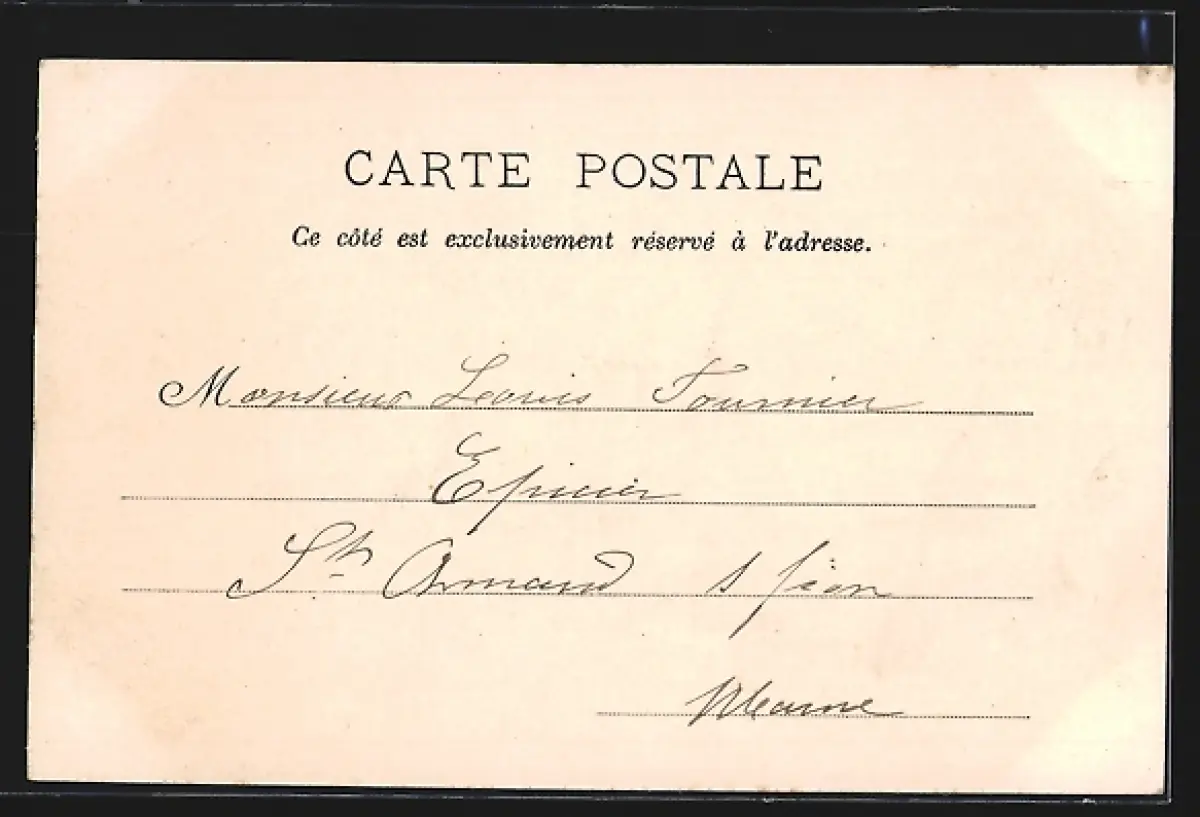 CARTE POSTALE
Ce côté est exclusivement réservé à l'adresse.
Monsieur Louis Fournier
Epicier
St. Armand s/ fion
Marne